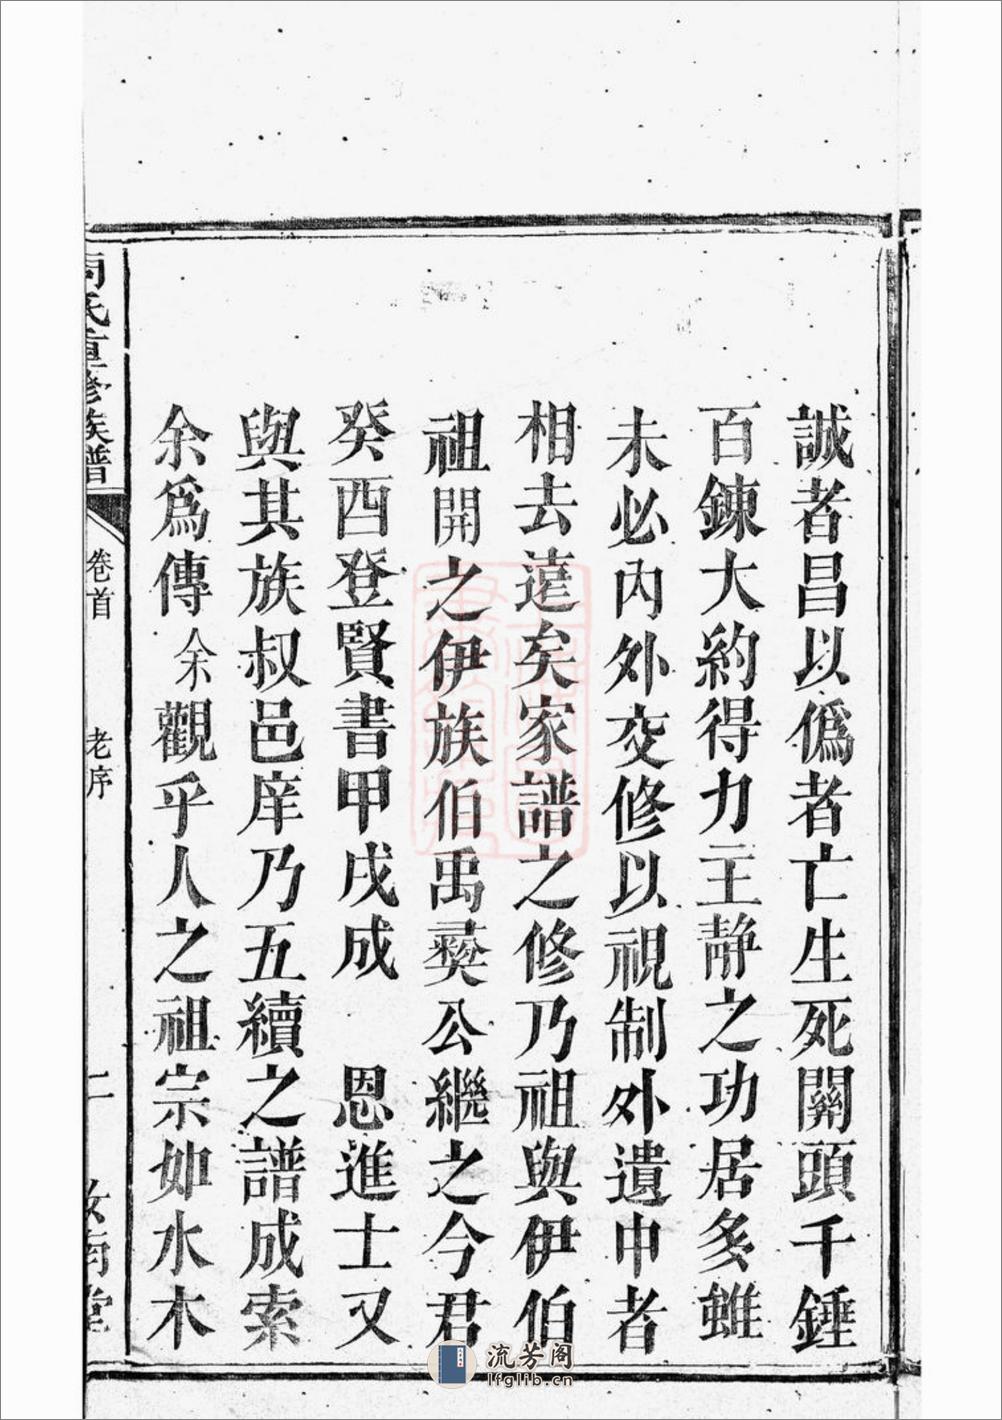 誠者昌以僞者亡生死關頭千錘
百鍊大約得力主靜之功居多雖
未必內外交修以視制外遺中者
相去遠矣家譜之修乃祖與伊伯
祖開之伊族伯禹彛公繼之今君
癸酉登賢書甲戌成　恩進士又
與其族叔邑庠乃五續之譜成索
余爲傳余觀乎人之祖宗如水木
周氏重修族譜
卷首
老序
二
汝南堂
流芳阁
lfglib.cn